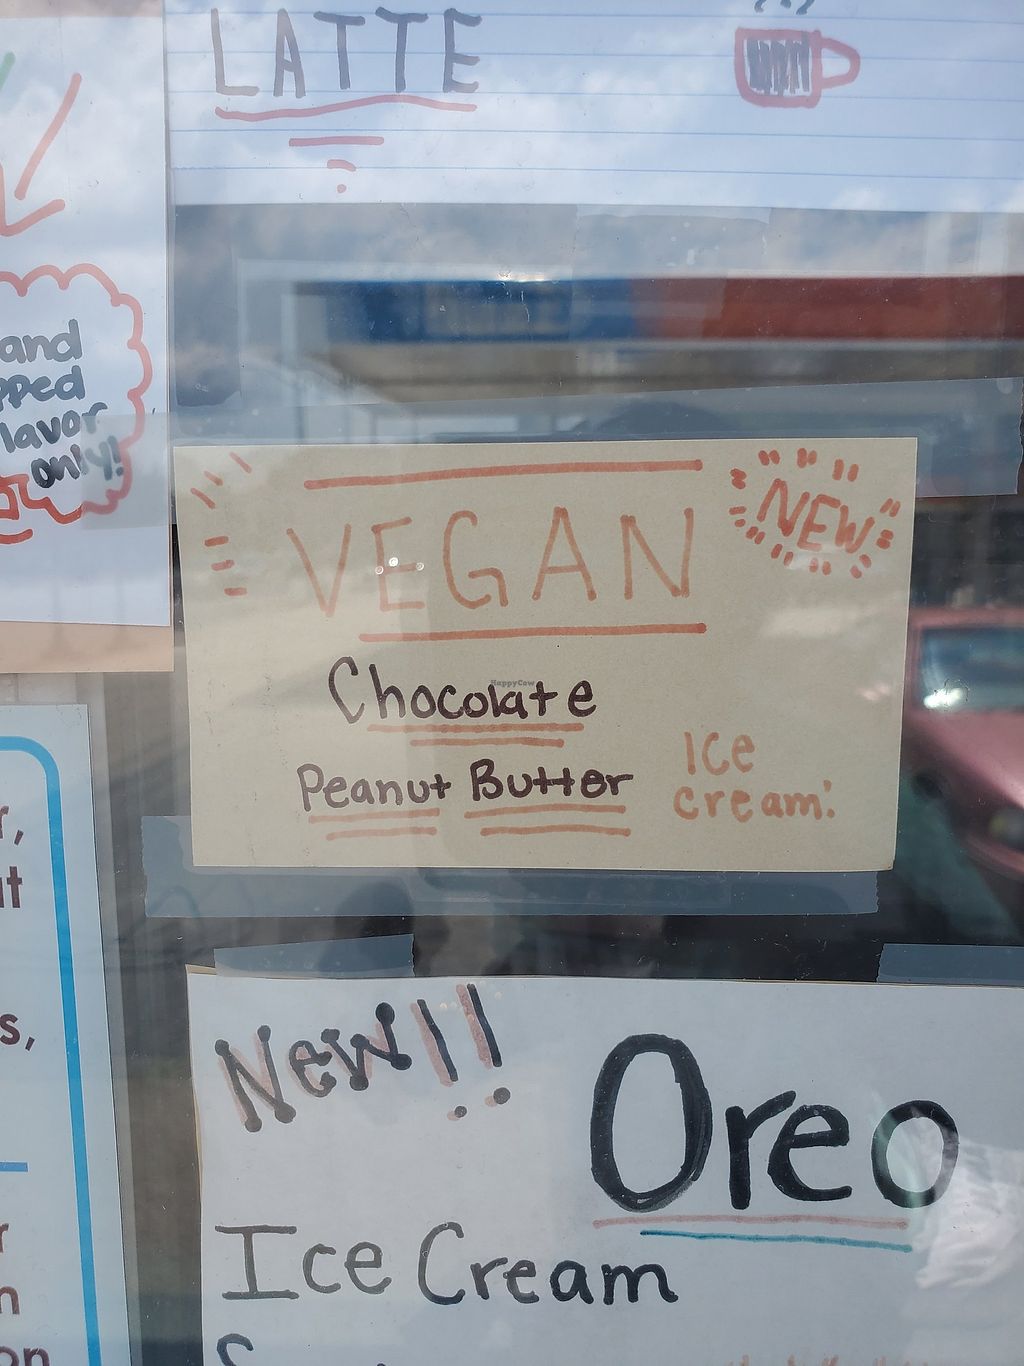 LATTE
and
pped
lavor
only!
VEGAN
NEW
Chocolate
HappyCow
Peanut Butter
Ice
cream!
New!!
Oreo
Ice Cream